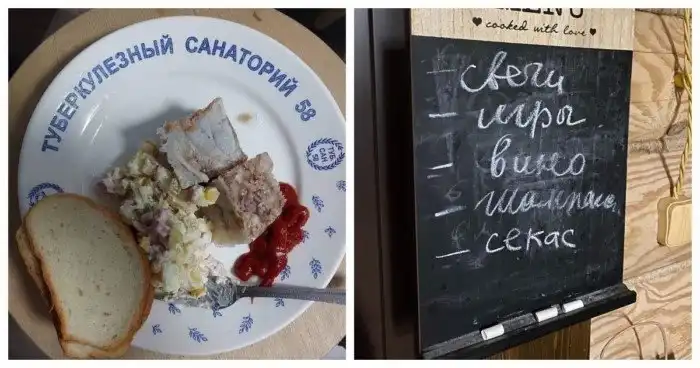 ТУБЕРКУЛЕЗНЫЙ САНАТОРИЙ 58
ТУБ
САН
58
MENU
cooked with love
– свечи
– игры
– вино
– шампанс.
– секас